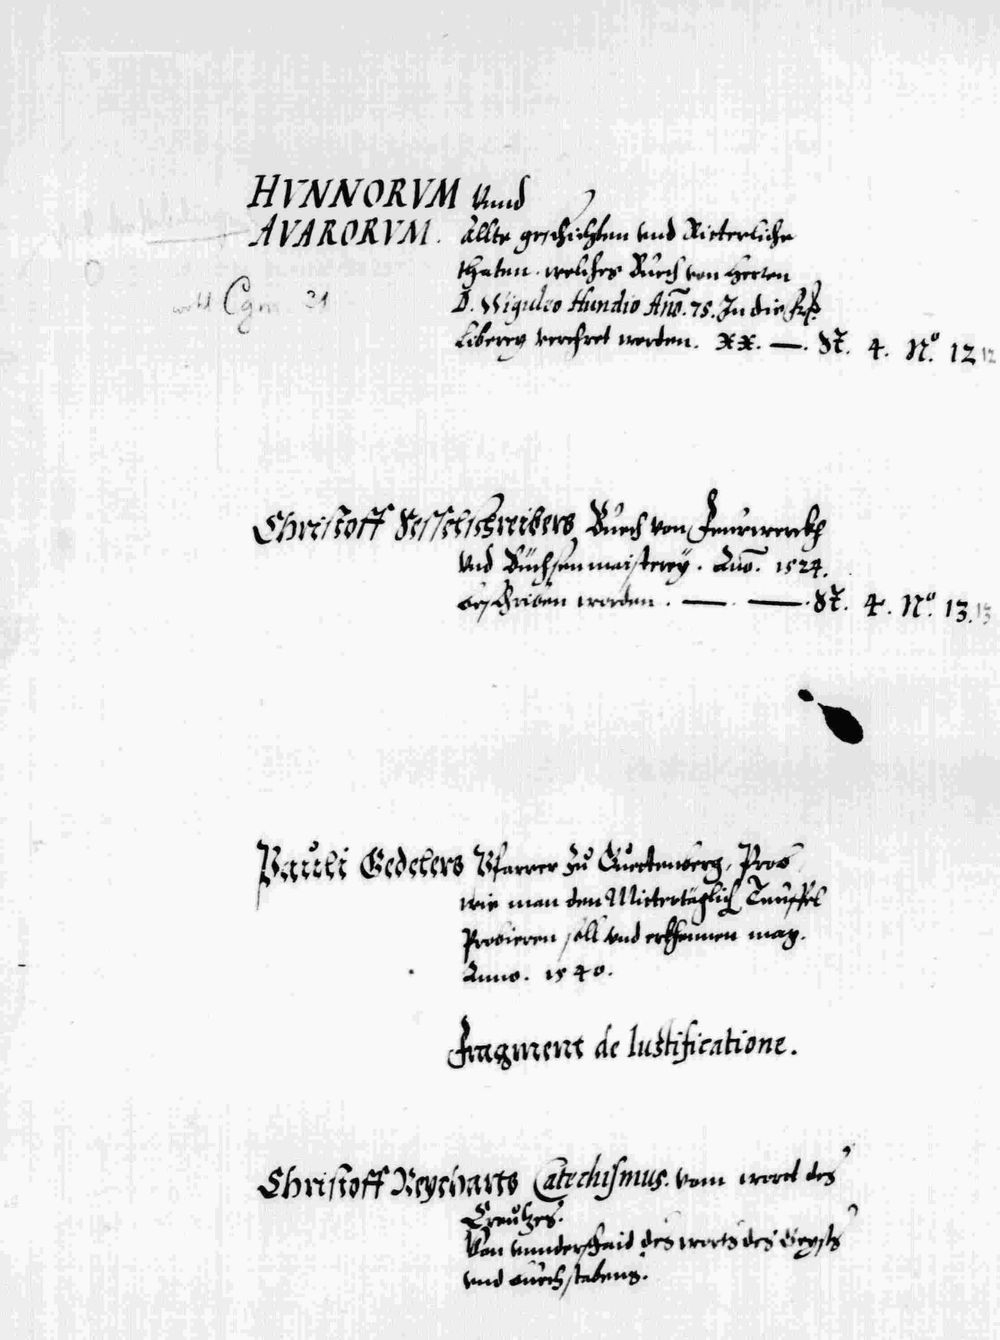 HVNNORVM Vnnd
AVARORVM. Allte geschichten vnd Ritterliche
thaten. welches Buech von Herren
D. Wiguleo Hundio Año. 75. In die
Liberey verehret worden. XX. — . St. 4. N.º 12 12
wohl Cgm. 31
Christoff Sesselschreibers Buech von Feurwerckh
vnd Büchsenmaisterey. Año. 1524.
beschriben worden. — — . St. 4. N.º 13. 13
Pauli Gedelers Pfarrer zu Prob
wie man den Mittertäglich Teuffel
Probieren soll vnd erkhennen mag.
Anno. 1540.
Fragment de Iustificatione.
Christoff Reycharts Catechismus. vom wortt des
Creutzes.
Von vnnderschaid des worts des Geysts
vnd buechstabens.